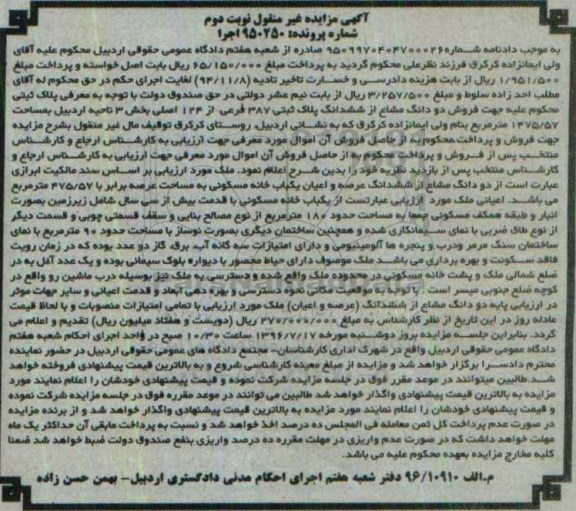 آگهی مزایده غیر منقول نوبت دوم
شماره پرونده: ۹۵۰۲۵۰ اجرا
به موجب دادنامه شماره ۹۵۰۹۹۷۰۴۰۴۷۰۰۰۲۶ صادره از شعبه هفتم دادگاه عمومی حقوقی اردبیل محکوم علیه آقای
ولی ایمانزاده کرکرق فرزند نظرعلی محکوم گردید به پرداخت مبلغ ۶۵/۱۵۰/۰۰۰ ریال بابت اصل خواسته و پرداخت مبلغ
۱/۹۵۱/۵۰۰ ریال از بابت هزینه دادرسی و خسارت تاخیر تادیه (۹۴/۱۱/۸) لغایت اجرای حکم در حق محکوم له آقای
مطلب احد زاده سلوط و مبلغ ۳/۲۵۷/۵۰۰ ریال از بابت نیم عشر دولتی در حق صندوق دولت با توجه به معرفی پلاک ثبتی
محکوم علیه جهت فروش دو دانگ مشاع از ششدانگ پلاک ثبتی ۳۸۷ فرعی از ۱۲۴ اصلی بخش ۳ ناحیه اردبیل بمساحت
۱۴۷۵/۵۷ مترمربع بنام ولی ایمانزاده کرکرق که به نشانی اردبیل، روستای کرکرق توقیف مال غیر منقول بشرح مزایده
جهت فروش و پرداخت محکوم به از حاصل فروش آن اموال مورد معرفی جهت ارزیابی به کارشناس ارجاع و کارشناس
منتخب پس از فروش و پرداخت محکوم به از حاصل فروش آن اموال مورد معرفی جهت ارزیابی به کارشناس ارجاع و
کارشناس منتخب پس از بازدید نظریه خود را بدین شرح اعلام نمود. ملک مورد ارزیابی بر اساس سند مالکیت ابرازی
عبارت است از دو دانگ مشاع از ششدانگ عرصه و اعیان یکباب خانه مسکونی به مساحت عرصه برابر با ۴۷۵/۵۷ مترمربع
می باشد. اعیانی ملک مورد ارزیابی عبارتست از یکباب خانه مسکونی با قدمت بیش از سی سال شامل زیرزمین بصورت
انبار و طبقه همکف مسکونی جمعا به مساحت حدود ۱۸۰ مترمربع از نوع مصالح بنایی و سقف قسمتی چوبی و قسمت دیگر
از نوع طاق ضربی با نمای سیمانکاری شده و همچنین ساختمان دیگری بصورت نوساز با مساحت حدود ۹۰ مترمربع با نمای
ساختمان سنگ مرمر ودرب و پنجره ها آلومینیومی و دارای امتیازات سه گانه آب، برق، گاز دو عدد بوده که در زمان رویت
فاقد سکونت و بهره برداری می باشد ملک موصوف دارای حیاط محصور با دیواره بلوک سیمانی بوده و یک عدد آغل به در
ضلع شمالی ملک و پشت خانه مسکونی در محدوده ملک واقع شده و دسترسی به ملک نیز بوسیله درب ماشین رو واقع در
کوچه ضلع جنوبی میسر است. با توجه به موقعیت مکانی نحوه دسترسی و بهره دهی ابعاد و قدمت اعیانی و سایر جهات موثر
در ارزیابی پایه دو دانگ مشاع از ششدانگ (عرصه و اعیان) ملک مورد ارزیابی با تمامی امتیازات منصوبات و با لحاظ قیمت
عادله روز در این تاریخ از نظر کارشناس به مبلغ ۲۷۰/۰۰۰/۰۰۰ ریال (دویست و هفتاد میلیون ریال) تقدیم و اعلام می
گردد. بنابراین جلسه مزایده بروز دوشنبه مورخه ۱۳۹۶/۷/۱۷ ساعت ۱۰/۳۰ صبح در واحد اجرای احکام شعبه هفتم
دادگاه عمومی حقوقی اردبیل واقع در شهرک اداری کارشناسان- مجتمع دادگاه های عمومی حقوقی اردبیل در حضور نماینده
محترم دادسرا برگزار خواهد شد و مزایده از مبلغ معینه کارشناسی شروع و به بالاترین قیمت پیشنهادی فروخته خواهد
شد.طالبین میتوانند در موعد مقرر فوق در جلسه مزایده شرکت نموده و قیمت پیشنهادی خودشان را اعلام نمایند مورد
مزایده به بالاترین قیمت پیشنهادی واگذار خواهد شد طالبین می توانند در موعد مقرره فوق در جلسه مزایده شرکت نموده
و قیمت پیشنهادی خودشان را اعلام نمایند مورد مزایده به بالاترین قیمت پیشنهادی واگذار خواهد شد و از برنده مزایده
در صورت عدم پرداخت کل ثمن معامله فی المجلس ده درصد اخذ خواهد شد و نسبت به پرداخت مابقی آن حداکثر یک ماه
مهلت خواهد داشت که در صورت عدم واریزی در مهلت مقرره ده درصد واریزی بنفع صندوق دولت ضبط خواهد شد ضمنا
کلیه مخارج مزایده بعهده محکوم علیه می باشد.
م.الف ۹۶/۱۰۹۱۰ دفتر شعبه هفتم اجرای احکام مدنی دادگستری اردبیل- بهمن حسن زاده